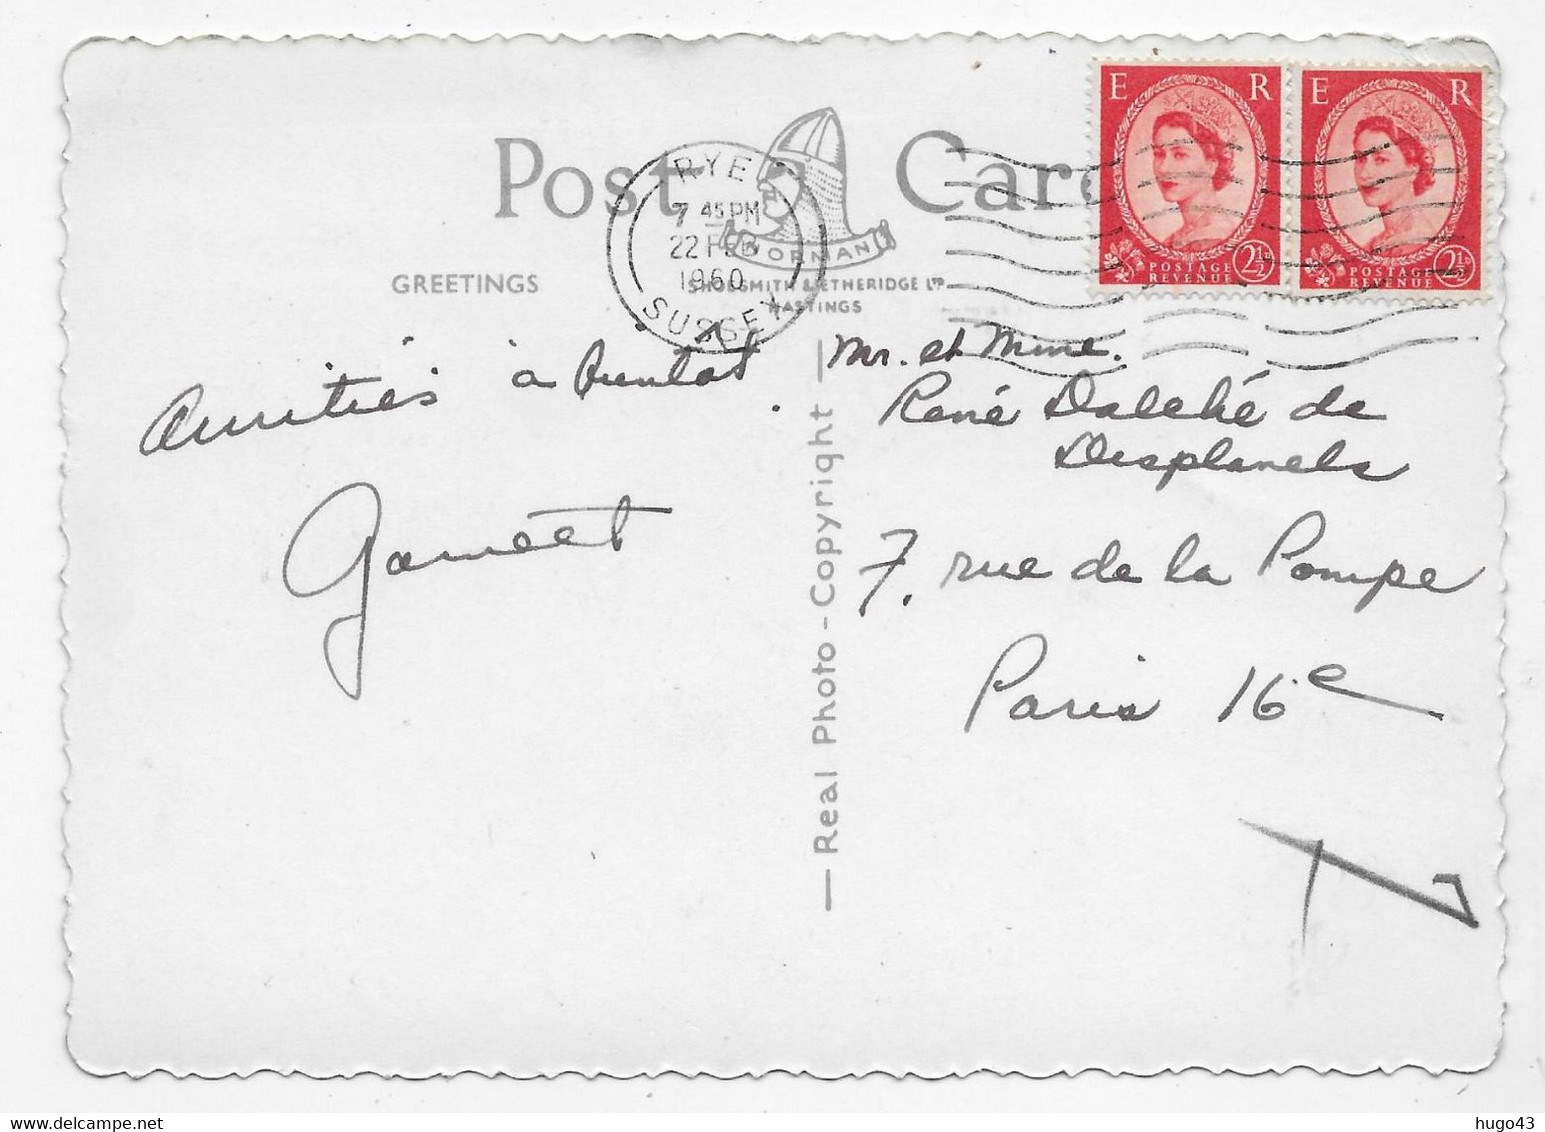 Post Card
E R
POSTAGE
REVENUE 2½
E R
POSTAGE
REVENUE 2½
RYE
7 45 PM
22 FEB
1960
SUSSEX
NORMAN
GREETINGS
SHOESMITH & ETHERIDGE LTD
HASTINGS
Amitiés à bientôt.
Mr. et Mme.
René Dalché de
Desplanels
7, rue de la Pompe
Paris 16e
— Real Photo - Copyright —
hugo43